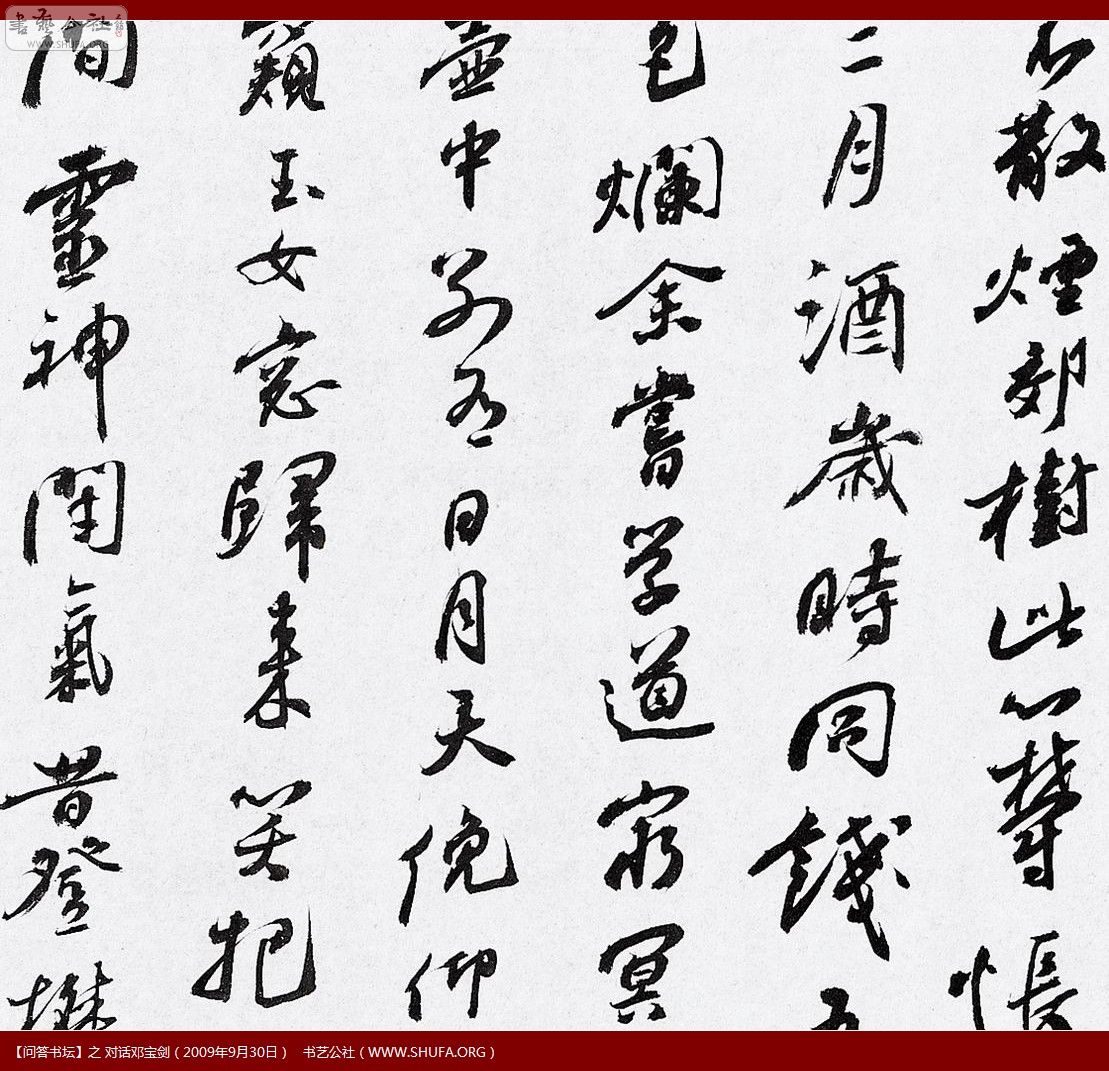 不散煙郊樹此心鬱悵
三月酒歲時同餞五
色爛余嘗學道窮冥
壺中別有日月天俛仰
窺玉女窓歸來笑把
間靈神閉氣昔登攀
書藝公社
WWW.SHUFA.ORG
【问答书坛】之 对话邓宝剑（2009年9月30日） 书艺公社（WWW.SHUFA.ORG）